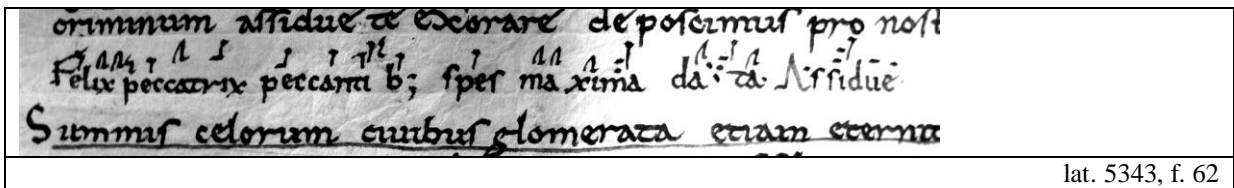 criminum assidue te exorare deposcimus pro nost
Felix peccatrix peccanti b; spes maxima data. Assidue
Summis celorum ciuibus glomerata etiam eterna
lat. 5343, f. 62